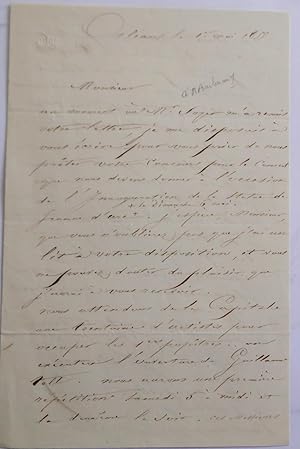 Orléans le 1er mai 1855
a Rambaux
Monsieur
au moment où Mr. m'a remis
votre lettre, je me disposais à
vous écrire pour vous prier de nous
prêter votre concours pour le Concert
que nous devons donner à l'occasion
de l'Inauguration de la Statue de
le dimanche 6 mai.
Jeanne d'arc. j'espère, Monsieur,
que vous n'oublierez pas que j'ai un
lit à votre disposition, et vous
ne pouvez douter du plaisir que
j'aurai à vous recevoir.
nous attendons de la Capitale
une trentaine d'artistes pour
occuper les 1ers pupitres. on
exécutera l'ouverture de Guillaume
tell. nous aurons une première
répétition Samedi 5 à midi et
la deuxième le Soir. ces Messieurs